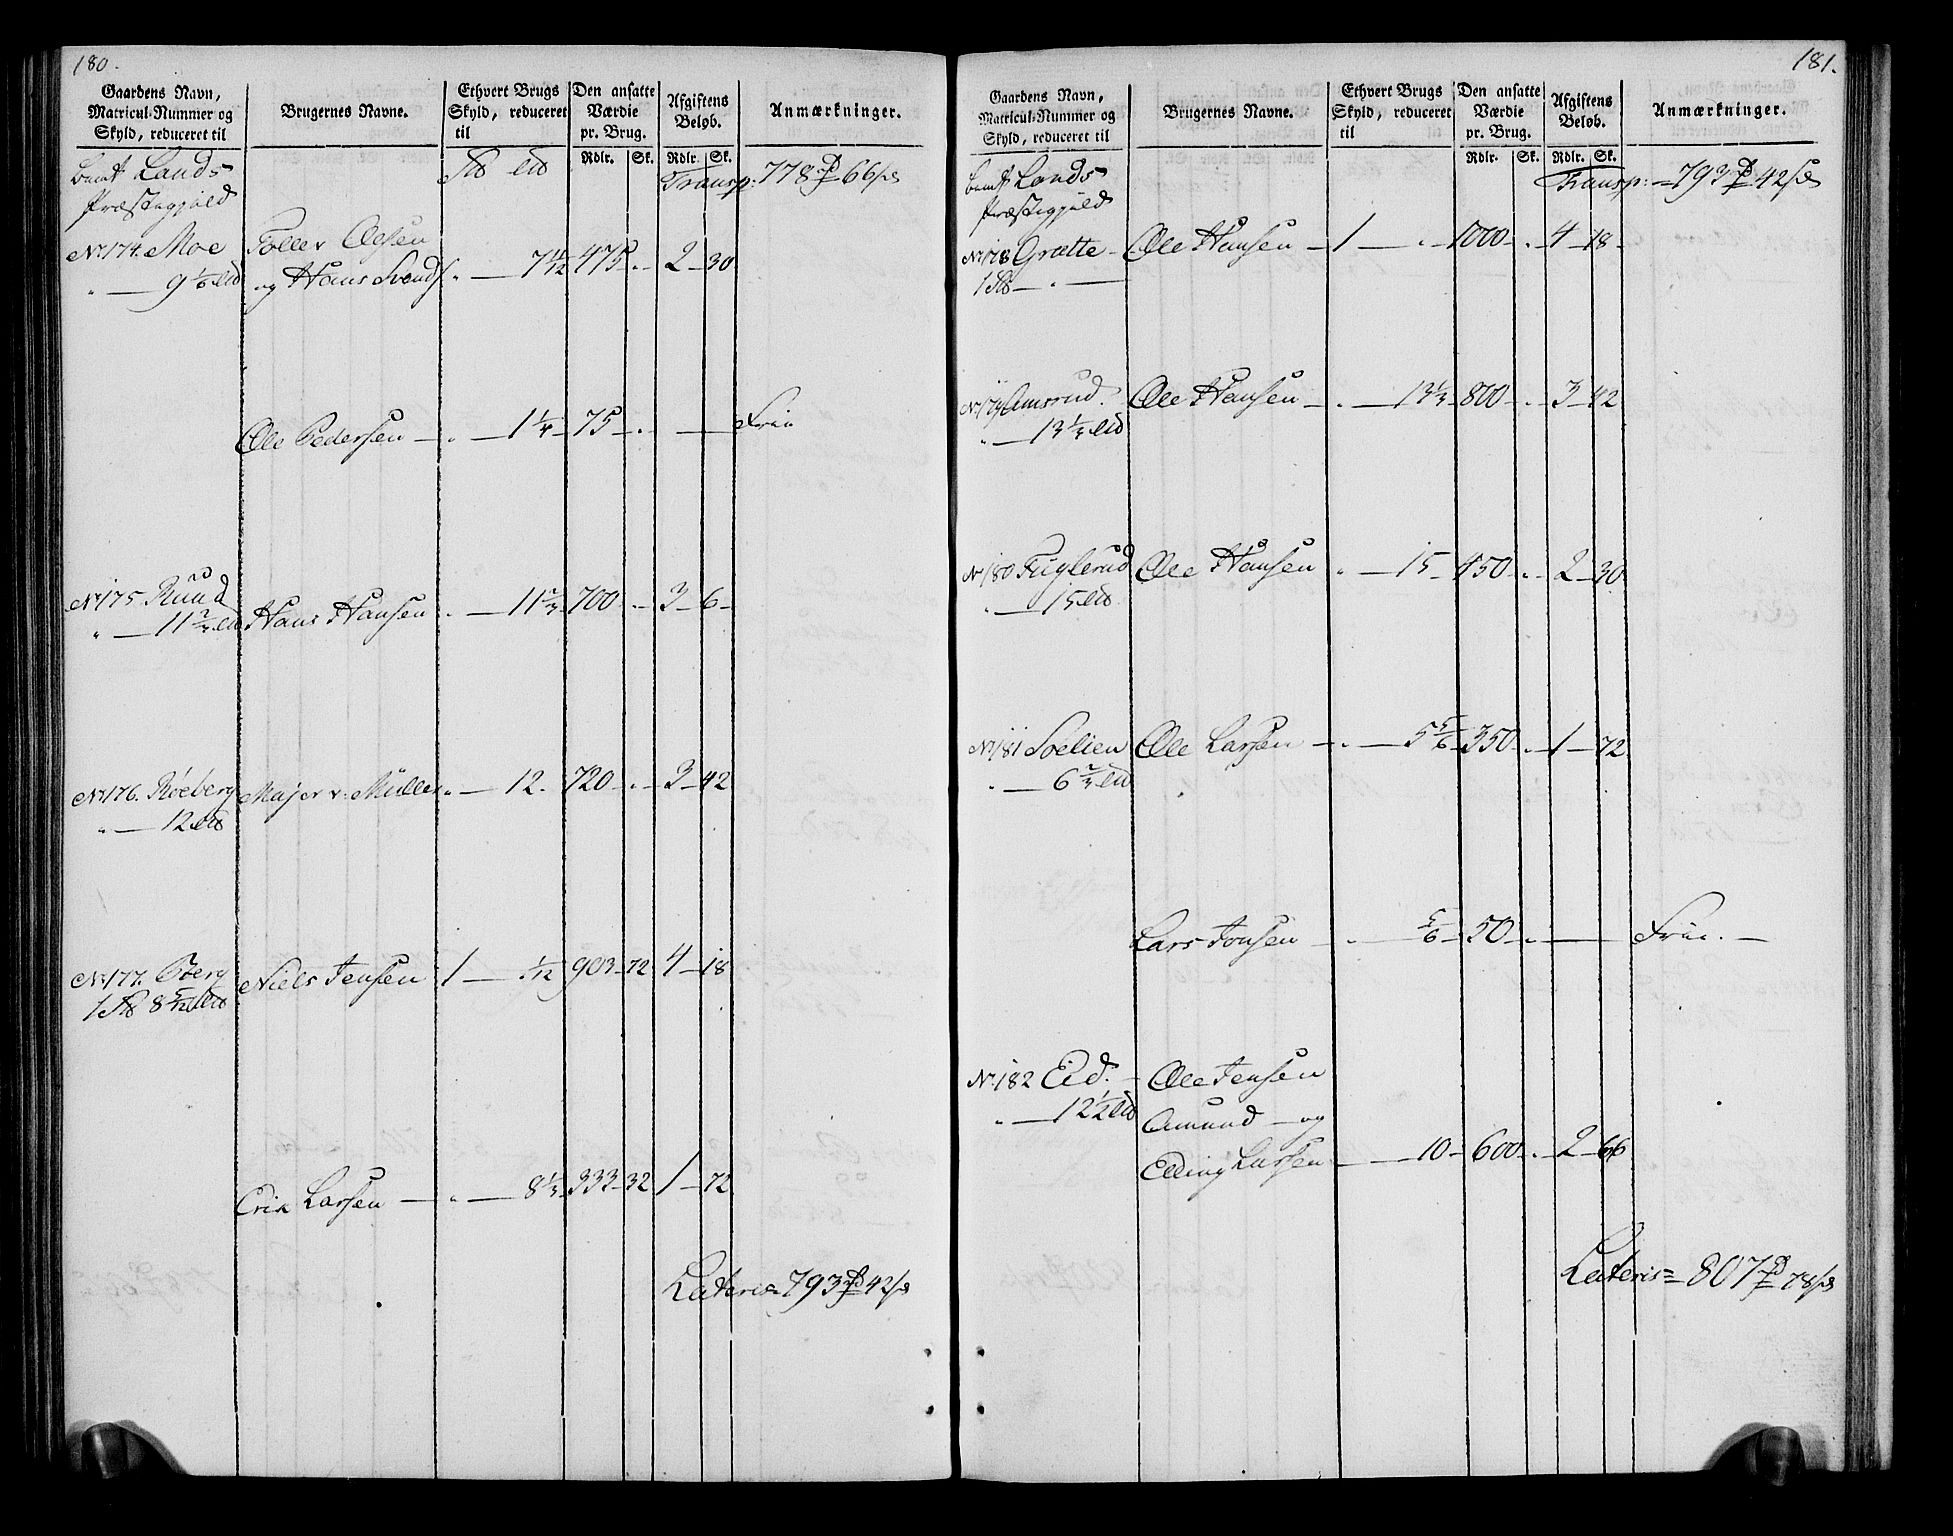 180.
Gaardens Navn, Matricul-Nummer og Skyld, reduceret til
Brugernes Navne.
Ethvert Brugs Skyld, reduceret til
Den ansatte Værdie pr. Brug.
Afgiftens Beløb.
Anmærkninger.
Rdlr. Sk. Rdlr. Sk.
Lands
Præstegjæld
Transp: 778 66
No 174. Moe Toller Olsen
9 1/6 og Hans Svends. " — 7 11/12 475 " 2 — 30
Ole Pedersen — " — 1 1/4 — 75 — " — Frie
No 175 Ruud
11 2/3 Hans Hansen " — 11 2/3 700 — " 3 — 6 —
No 176. Røeberg Majer v: Müller " — 12. 720 — " 3 — 42
" — 12
No 177. Berg Niels Jensen 1 — 1/12 903 — 72 4 — 18
1 8 5/12
Erik Larsen — " — 8 1/3 333 — 32 1 — 72
Lateris 793 42
181.
Gaardens Navn, Matricul-Nummer og Skyld, reduceret til
Brugernes Navne.
Ethvert Brugs Skyld, reduceret til
Den ansatte Værdie pr. Brug.
Afgiftens Beløb.
Anmærkninger.
Rdlr. Sk. Rdlr. Sk.
Lands
Præstegjæld
Transp: 793 42
No 178 Grætte — Ole Hansen — 1 — " 1000 — " 4 — 18
1
No 179 Amsrud. Ole Hansen — " — 13 1/3 800 — " 3 — 42
" — 13 1/3
No 180 Fuglerud Ole Hansen " — 15 — 450 — " 2 — 30
" — 15
No 181 Soelien Ole Larsen — " — 5 5/6 350 — " 1 — 72
" — 6 2/3
Lars Jonsen — " 5/6 — 50 — " — Frie. —
No 182 Eid. — Ole Jensen
" — 12 1/2 Amund — og
Elling Larsen — 10 — 600 — " 2 — 66
Lateris = 807 78